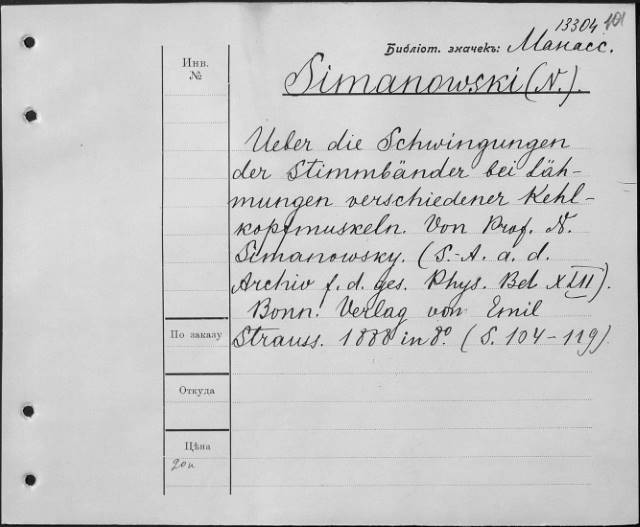 13304 101
Библіот. значекъ: Манасс.
Инв.
№
Simanowski (N.).
Ueber die Schwingungen
der Stimmbänder bei Läh-
mungen verschiedener Kehl-
kopfmuskeln. Von Prof. N.
Simanowsky. (S.-A. a. d.
Archiv f. d. ges. Phys. Bd XLII).
Bonn. Verlag von Emil
Strauss. 1888 in 8° (S. 104-119)
По заказу
Откуда
Цѣна
20к